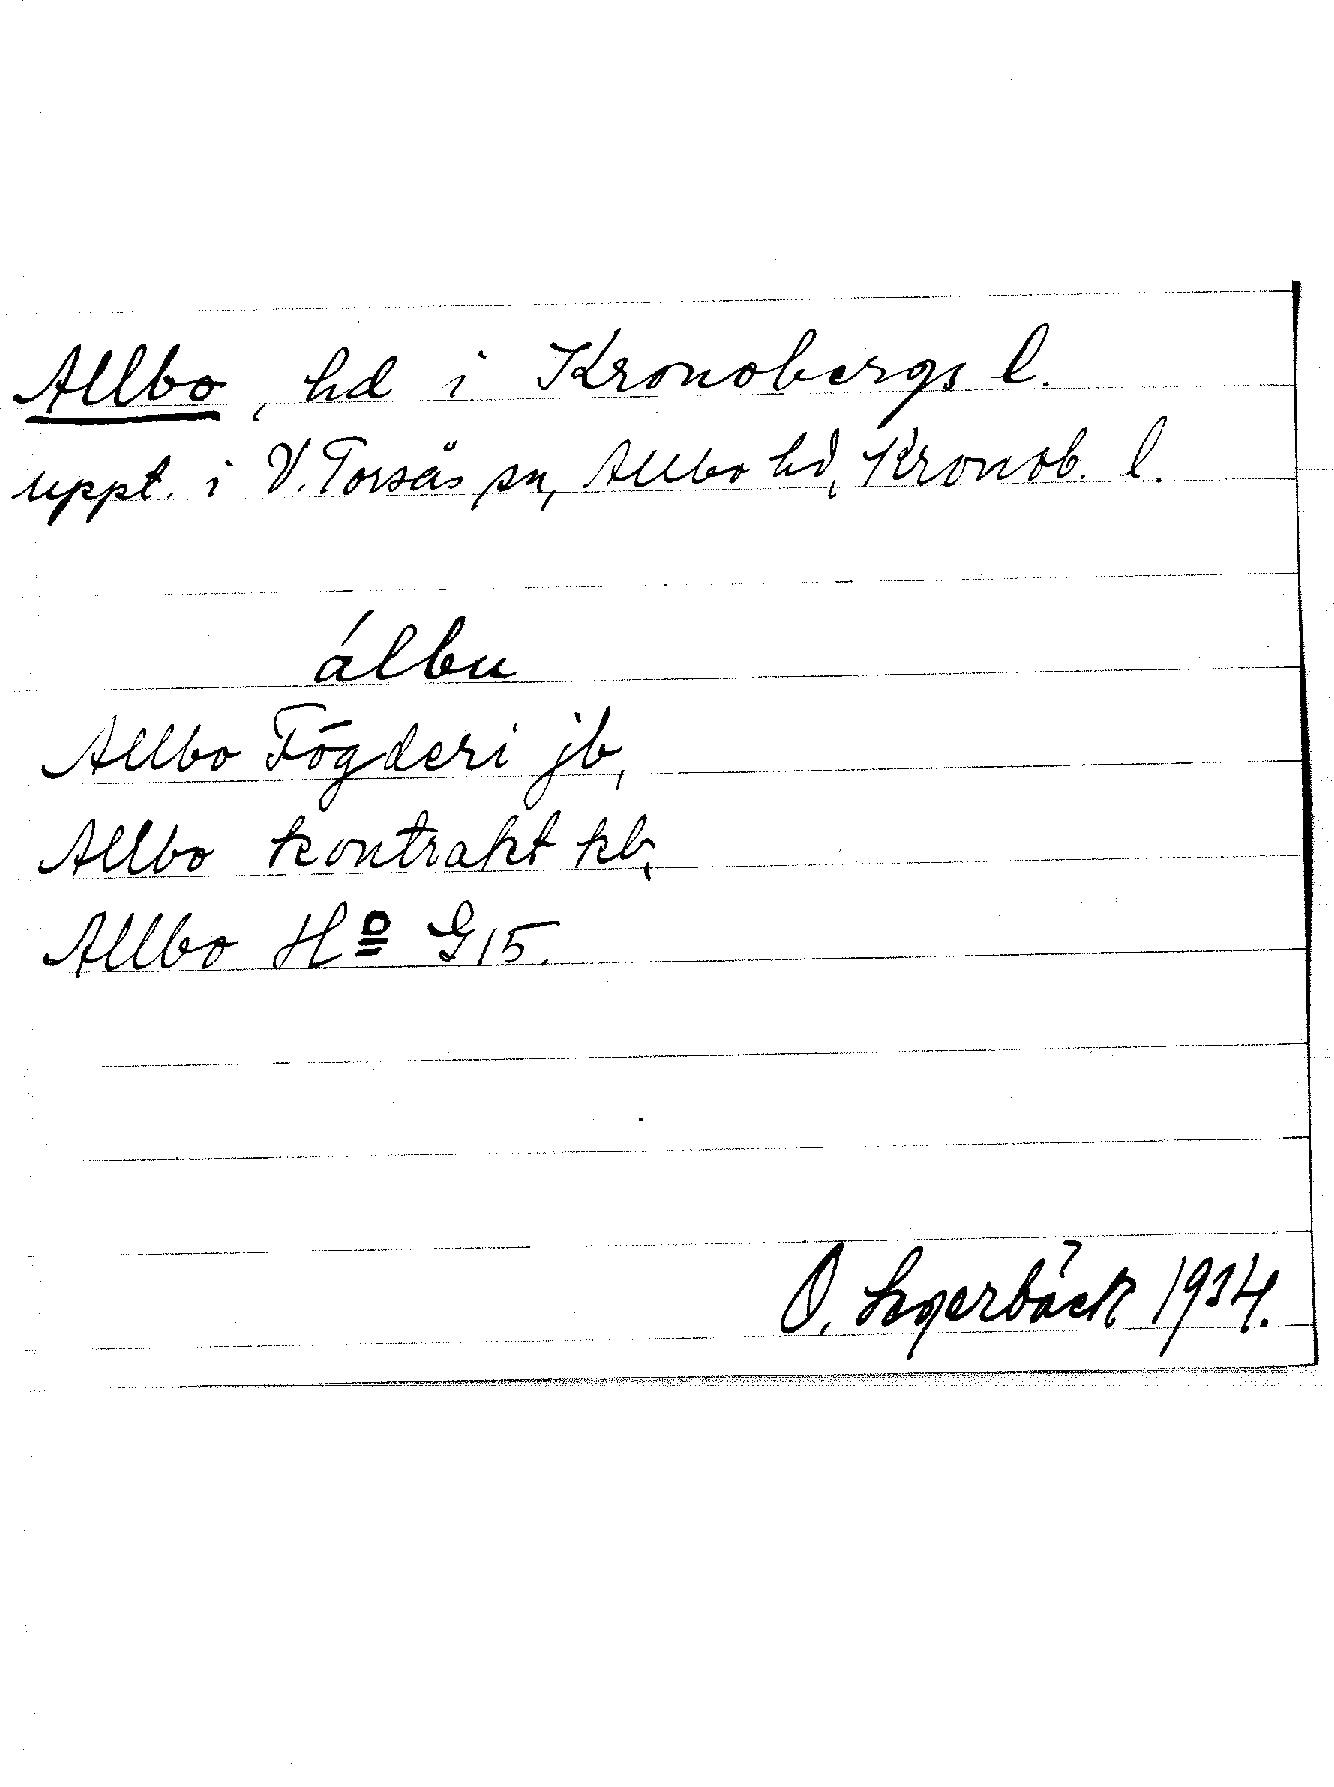 Allbo, hd i Kronobergs l.
uppt. i V. Torsås sn, Allbo hd, Kronob. l.
álbu
Allbo Fögderi jb,
Allbo kontrakt kb,
Allbo Hd G15.
O. 1934.